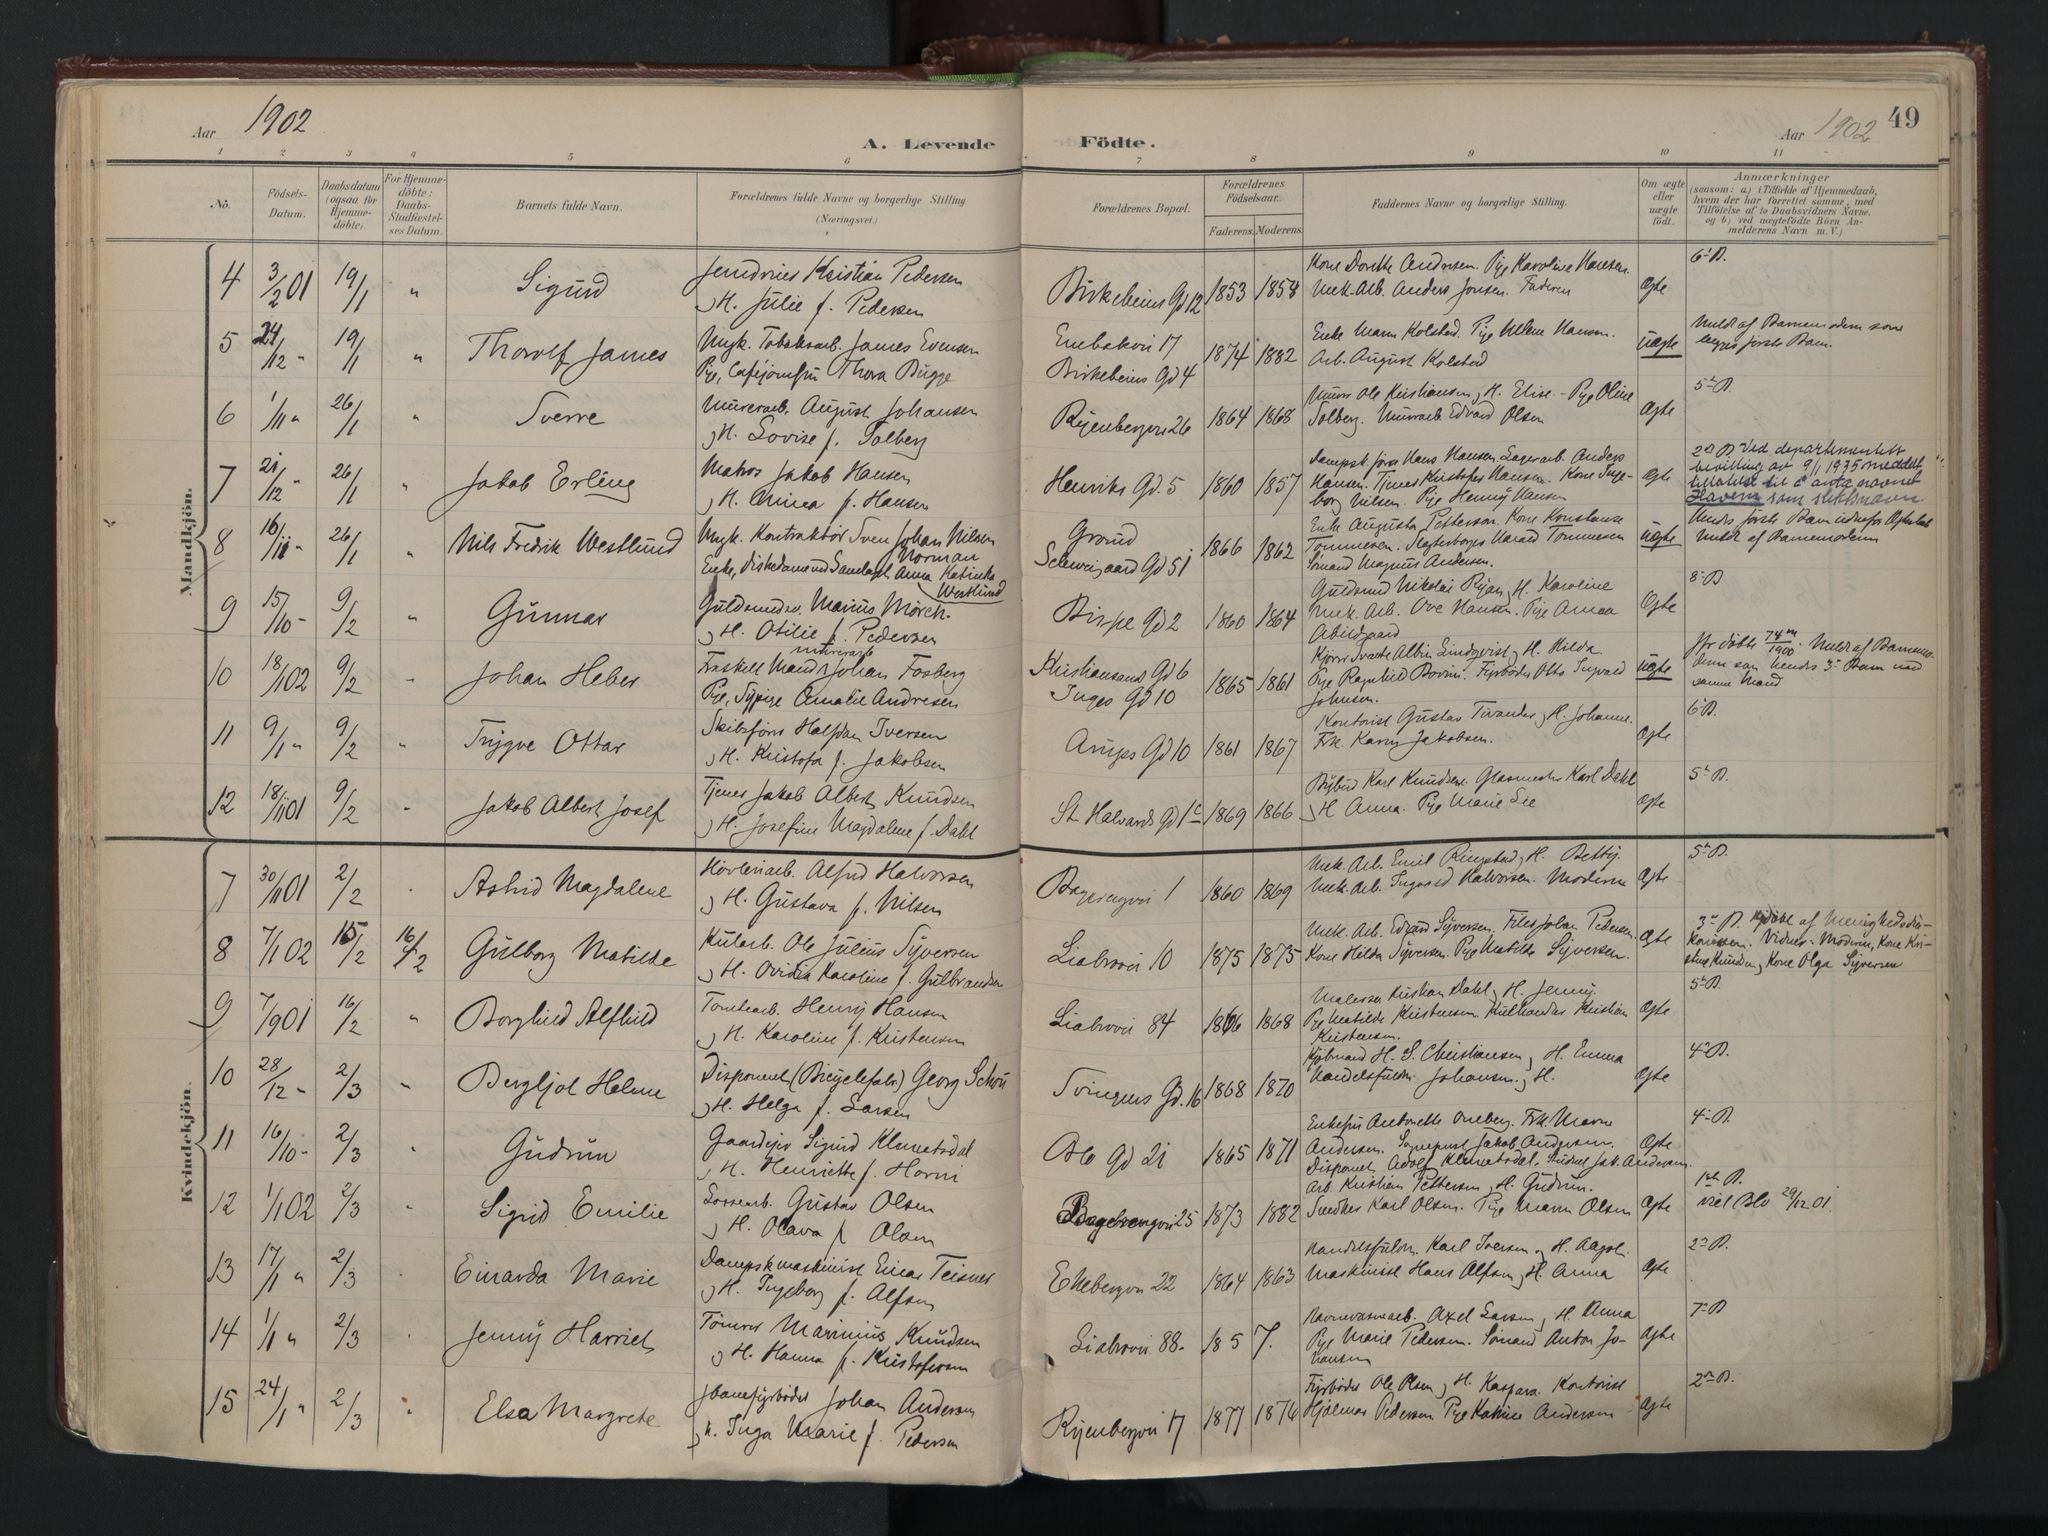 Aar 1902
A. Levende
Födte.
Aar 1902
49
1 2 3 4 5 6 7 8 9 10 11
Nö.
Födsels-Datum.
Daabsdatum (ogsaa for Hjemme-döbte).
For Hjemme-döbte: Daabs-Stadfæstel-ses Datum.
Barnets fulde Navn.
Forældrenes fulde Navne og borgerlige Stilling
(Næringsvei.)
Forældrenes Bopæl.
Forældrenes Födselsaar.
Faderens.
Moderens.
Faddernes Navne og borgerlige Stilling.
Om ægte eller uægte födt.
Anmærkninger
(saasom: a) i Tilfælde af Hjemmedaab, hvem der har forrettet samme, med Tilföielse af to Daabsvidners Navne, og b) ved uægtefödte Börn An-melderens Navn m. V.)
Mandkjön.
4 3/2 01 19/1 " Sigurd
Kristian Pedersen
H. Julie f. Pedersen
Birkebeins Gd 12 1853 1858
Kone Dorthe Andresen. Pige Karoline Hansen.
Mek. Arb. Anders Jonsen. Faderen
Ægte 6te B.
5 24/12 " 19/1 " Thorolf James
Ugk. Tobaksarb. James Evensen
Pige, Cafejomfru Thora Bugge
Enebakvei 17
Birkebeins Gd 4
1874 1882
Enke Maren Kolstad. Pige Helene Hansen.
Arb. August Kolstad
uægte
Meldt af Barnemoderen som
hendes første Barn.
6 1/11 " 26/1 " Sverre
Murerarb. August Johansen
H. Lovise f. Solberg
Ryenbergvei 26 1864 1868
Murer Ole Kristiansen, H. Elise. - Pige Oline
Solberg. Murerarb Edvard Olsen
Ægte 5te B.
7 21/12 " 26/1 " Jakob Erling
Matros Jakob Hansen
H. Minea f. Hansen
Henriks Gd. 5 1860 1857
Dampsk. fører Hans Hansen, Lagerarb. Anders
Hansen. Tjener Kristofer Hansen. Kone Inge-
borg Nilsen. Pige Henny Hansen
Ægte
2det B. Ved departementets
bevilling av 9/1 1935 meddelt
tillatelse til å anta navnet
Havem som slektsnavn.
8 16/11 - 26/1 " Nils Fredrik Westlund
Ugk. Kontraktör Sven Johan Nilsen
Norman
Enke, Anna Katinka
Westlund
Grønd
Schweigaard Gd 51
1866 1862
Enke Augusta Petterson. Kone Konstanse
Tömmesen. Harald Tömmesen
Sömand Magnus Andersen.
uægte
Hendes første Barn udenfor Ægteskab
Meldt af Barnemoderen
9 15/10 - 9/2 " Gunnar
Guldsmedsv. Marius Mörch.
H. Otilie f. Pedersen
Bispe Gd 2 1860 1864
Guldsmed Nikolai Ryan, H. Karoline
Mek. Arb. Ove Hansen. Pige Anna
Abildgaard
Ægte 8de B
10 18/1 02 9/2 " Johan Heber
murerarb
Fraskilt Mand Johan Fosberg
Pige, Sypige Amalie Andresen
Kristiansands Gd 6
Inges Gd 10
1865 1861
Kjører Svante Albin Lindqvist, H. Hilda
Pige Ragnhild Bovim. Fyrbøder Otto Ingvard
Johnsen.
uægte
Jfr döbte 74m/1900. Meldt af Barnemo-
deren som hendes 3de Barn med
samme Mand
11 9/1 " 9/2 " Trygve Ottar
Skibsförer Halfdan Iversen
H. Kristofa f. Jakobsen
Arups Gd 10 1861 1867
Kontorist Gustav Tivander, H. Johanne.
Frk. Karen Jakobsen.
Ægte 6te B.
12 18/11 01 9/2 " Jakob Albert Josef
Tjener Jakob Albert Knudsen
H. Josefine Magdalene f. Dahl
St Halvards Gd 1c 1869 1866
Bybud Karl Knudsen. Glasmester Karl Dahl
H Anna. Pige Marie Lie
Ægte 5te B.
Kvindekjön.
7 30/11 01 2/2 " Astrid Magdalene
Høvleriarb. Alfred Halvorsen
H. Gustava f. Nilsen
Bøgerengvei 1 1860 1869
Mek. Arb. Emil Ringstad, H. Betty.
Mek. Arb. Ingvard Halvorsen. Moderen
Ægte 5te B.
8 7/1 02 15/2 16/2 Gulborg Matilde
Kularb. Ole Julius Syversen
H. Ovidia Karoline f. Gulbrandsen
Liabrovei 10 1875 1875
Mek. Arb. Edvard Syversen. Johan Pedersen
Kone Hilda Syversen. Pige Matilde Syversen.
Ægte
3de B. Hjdöbt af Menighedsdia-
konissen. Vidner: Moderen, Kone Kri-
stine Knudsen, Kone Olga Syversen
9 7/9 01 16/2 " Borghild Alfhild
Tomtearb. Henry Hansen
H. Karoline f. Kristensen
Liabrovei 84 1866 1868
Malersv. Kristian Dahl, H. Jenny.
Pige Matilde Kristensen. Kulhandler Kristian
Kristensen.
Ægte 5te B.
10 28/12 - 2/3 " Bergljot Helene
Disponent (Bicyclefabr) Georg Schou
H. Helga f. Larsen
Tvingens Gd. 16 1868 1870
Kjöbmand H. S. Christiansen, H. Emma
Handelsfuldm. Johansen, H.
Ægte 4de B.
11 16/10 - 2/3 " Gudrun
Gaardeier Sigurd Klemetsdal
H. Henriette f. Horni
Oslo Gd 21 1865 1871
Enkefru Antonette Oneberg. Frk. Maren
Andersen. Sogneprest Jakob Andersen.
Disponent Adolf Klemetsdal. Student Jak. Andersen.
Ægte 4de B.
12 1/1 02 2/3 " Sigrid Emilie
Lossearb. Gustav Olsen
H. Olava f. Olsen
Bøgerengvei 25 1873 1882
Arb. Kristian Pettersen, H. Gudrun.
Snedker Karl Olsen. Pige Maren Olsen
Ægte
1ste B.
viet Oslo 29/12 01.
13 17/1 " 2/3 " Einarda Marie
Dampskmaskinist Einar Teisner
H. Ingeborg f. Alfsen
Ekebergvei 22 1864 1863
Handelsfuldm. Karl Iversen, H. Aagot.
Maskinist Hans Alfsen, H. Anna
Ægte 2det B.
14 1/1 " 2/3 " Jenny Harriet
Tömrer Marinius Knudsen
H. Hanna f. Kristofersen
Liabrovei 88. 1857.
Havnevæsenarb. Axel Larsen, H. Anna
Pige Marie Pedersen. Sömand Anton Jo-
hansen
Ægte 7de B
15 24/1 " 2/3 " Elsa Margrete
Jbanefyrbøder Johan Andersen
H. Inga Marie f. Pedersen
Ryenbergvei 17 1877 1876
Fyrbøder Ole Olsen, H. Kaspara. Kontorist
Hjalmar Pedersen Pige Katrine Andersen
Ægte 2det B.